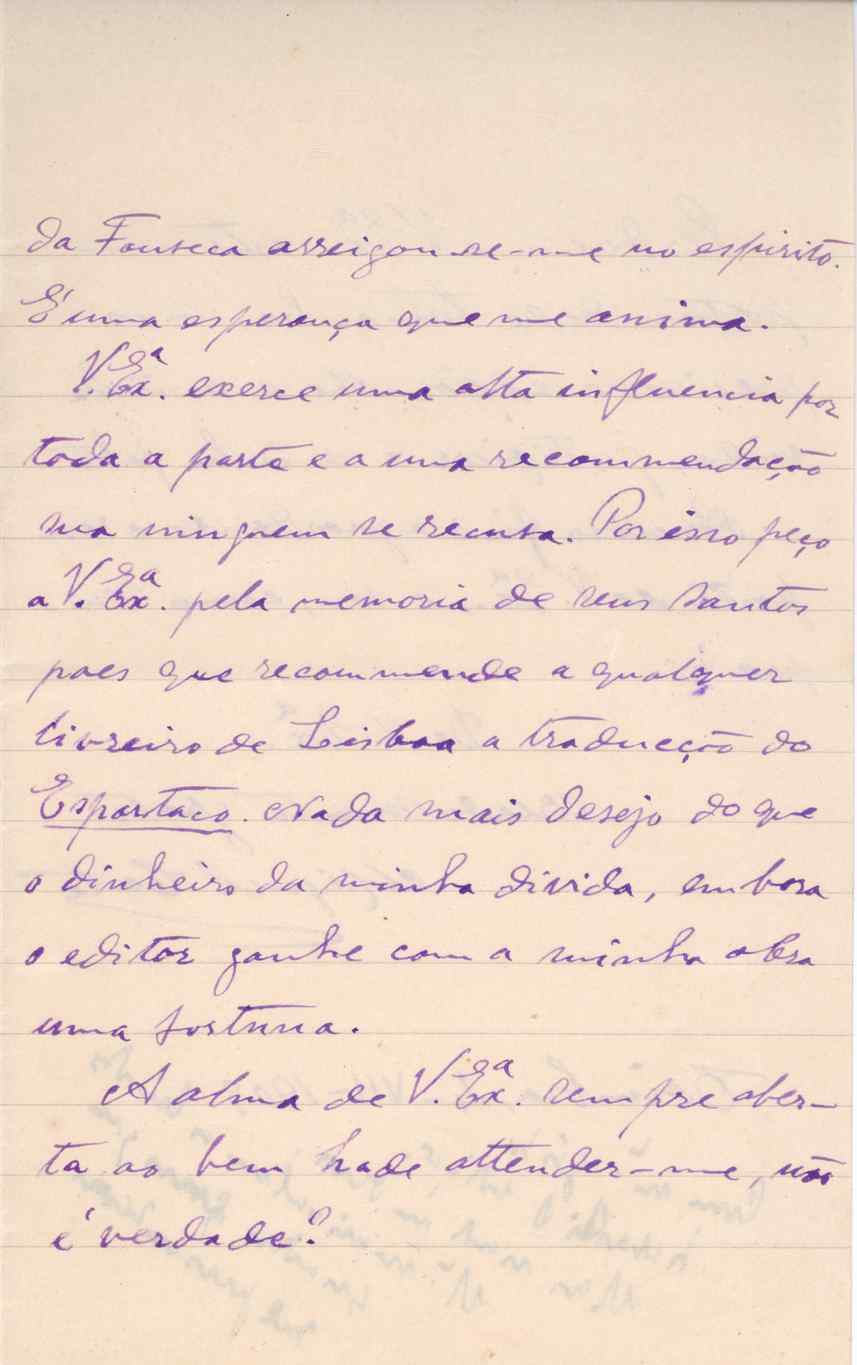 da Fonseca arreigou-se-me no espirito.
É uma esperança que me anima.
V. Ex.ª exerce uma alta influencia por
toda a parte e a uma recommendação
sua ninguem se recusa. Por isso peço
a V. Ex.ª pela memoria de seus santos
paes que recommende a qualquer
livreiro de Lisboa a traducção do
Espartaco. Nada mais desejo do que
o dinheiro da minha divida, embora
o editor ganhe com a minha obra
uma fortuna.
A alma de V. Ex.ª sempre aber-
ta ao bem hade attender-me, não
é verdade?